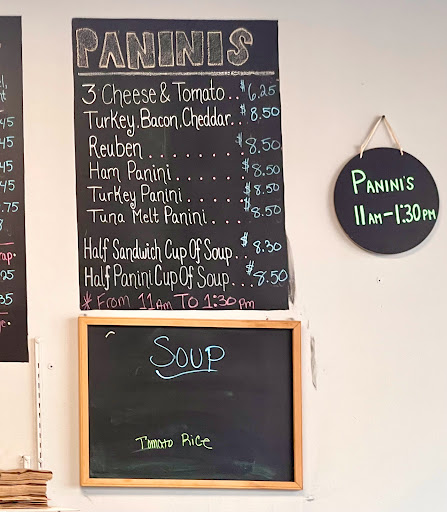 PANINIS
3 Cheese & Tomato.. $6.25
Turkey, Bacon, Cheddar.. $8.50
Reuben........ $8.50
Ham Panini...... $8.50
Turkey Panini..... $8.50
Tuna Melt Panini... $8.50
Half Sandwich Cup Of Soup.. $8.30
Half Panini Cup Of Soup... $8.50
* From 11am To 1:30pm
PANINI'S
11AM-1:30PM
Soup
Tomato Rice
45
45
45
45
.75
25
35